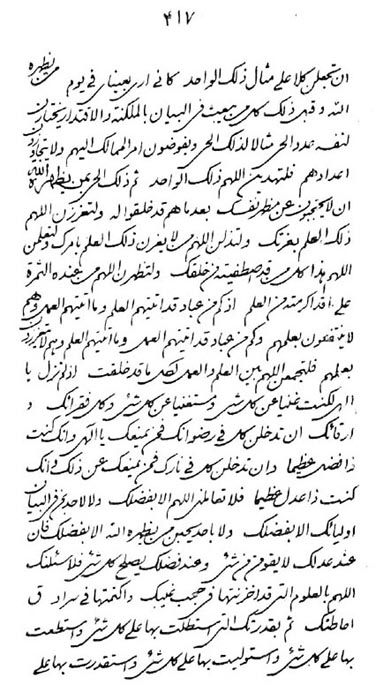 ٤١٧
ان تجعلن كلا على مثال ذلك الواحد كانى اريعينا فى يوم من يظهره
الله وقبل ذلك كل من يبعث فى البيان بالملكية والاقتدار يختارن
لنفسه عدد الحى مثالا لذلك الحى ويفوضون امر الممالك اليهم ولا يتجاوزن
اعدادهم فلتهدين اللهم ذلك الواحد ثم ذلك الحى بمن يظهره الله
ان لا يحتجبون عن مظهر نفسك بعد ما هم قد خلقوا له ولتعززن اللهم
ذلك العلم بعزتك ولتذلن اللهم من لا يعزن ذلك العلم بامرك ولتعلمن
اللهم هذا كل من قد اصطفيته من خلقك ولتظهرن اللهم من عنده الثمرة
على اقداكر منه من العلم اذ كم من عباد قد اتيتهم العلم وما اتيتهم العمل وهم
لا ينتفعون بعلمهم وكم من عباد قد اتيتهم العمل وما اتيتهم العلم وهم لا
بعلمهم فلتجمعن اللهم بين العلم والعمل لكل ما قد خلقت اذ لم تزل يا
الهى لكنت غنيا عن كل شئ ومستغنيا عن كل شئ وكل فقرائك و
ارقائك ان تدخلن كل فى رضوانك فمن يمنعك يا الهى وانك كنت
ذا فضل عظيما وان تدخلن كل فى نارك فمن يمنعك عن ذلك وانك
كنت ذا عدل عظيما فلا تعاملنى اللهم الا بفضلك ولا لاحد من فى البيان
اوليائك الا بفضلك ولا باحد يحبن من يظهره الله الا بفضلك فان
عند عدلك لا يقومن من شئ وعند فضلك يصلح كل شئ فلاسئلنك
اللهم بالعلوم التى قد اخزنتها فى حجب غيبك واكتمتها فى سرادق
احاطتك ثم بقدرتك التى استطلت بها على كل شئ واستطعت
بها على كل شئ واستوليت بها على كل شئ واستقدرت بها على